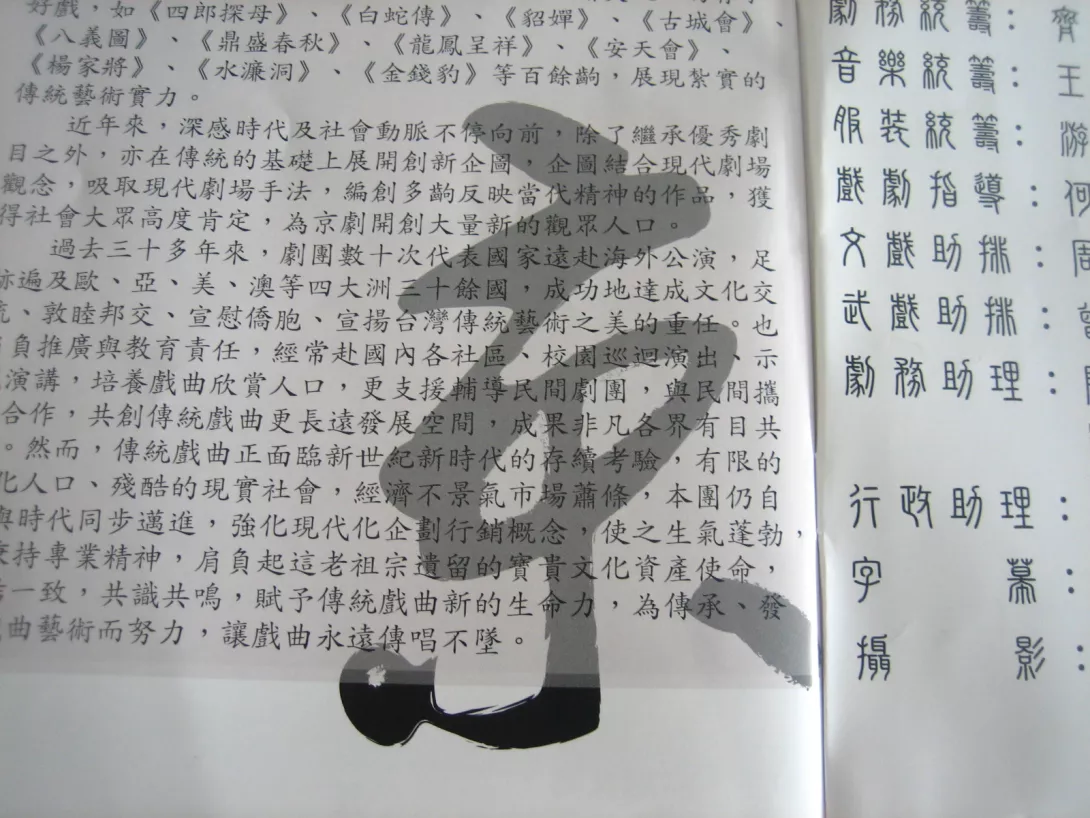 好戲，如《四郎探母》、《白蛇傳》、《貂嬋》、《古城會》、
《八義圖》、《鼎盛春秋》、《龍鳳呈祥》、《安天會》、
《楊家將》、《水濂洞》、《金錢豹》等百餘齣，展現紮實的
傳統藝術實力。
近年來，深感時代及社會動脈不停向前，除了繼承優秀劇
目之外，亦在傳統的基礎上展開創新企圖，企圖結合現代劇場
觀念，吸取現代劇場手法，編創多齣反映當代精神的作品，獲
得社會大眾高度肯定，為京劇開創大量新的觀眾人口。
過去三十多年來，劇團數十次代表國家遠赴海外公演，足
跡遍及歐、亞、美、澳等四大洲三十餘國，成功地達成文化交
流、敦睦邦交、宣慰僑胞、宣揚台灣傳統藝術之美的重任。也
負推廣與教育責任，經常赴國內各社區、校園巡迴演出、示
演講，培養戲曲欣賞人口，更支援輔導民間劇團，與民間攜
合作，共創傳統戲曲更長遠發展空間，成果非凡各界有目共
。然而，傳統戲曲正面臨新世紀新時代的存續考驗，有限的
化人口、殘酷的現實社會，經濟不景氣市場蕭條，本團仍自
與時代同步邁進，強化現代化企劃行銷概念，使之生氣蓬勃，
秉持專業精神，肩負起這老祖宗遺留的寶貴文化資產使命，
一致，共識共鳴，賦予傳統戲曲新的生命力，為傳承、發
曲藝術而努力，讓戲曲永遠傳唱不墜。
京
劇務統籌：齊
音樂統籌：王
服裝統籌：游
戲劇指導：何
文戲助排：周
武戲助排：
劇務助理：
行政助理：
字幕：
攝影：